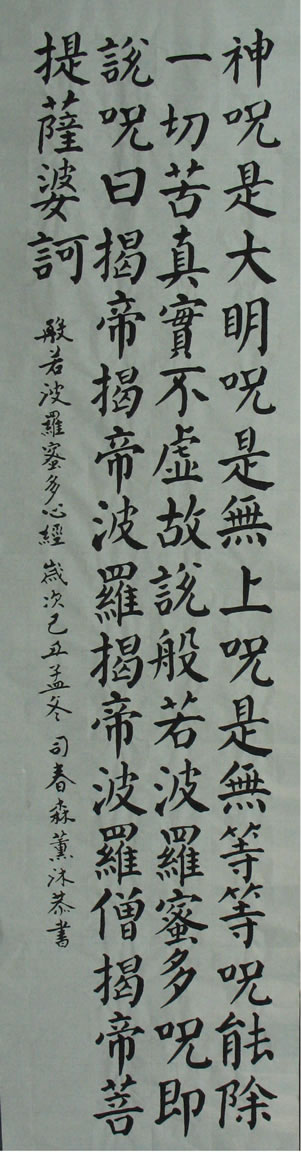 神呪是大明呪是無上呪是無等等呪能除
一切苦真實不虛故說般若波羅蜜多呪即
說呪曰揭帝揭帝波羅揭帝波羅僧揭帝菩
提薩婆訶
般若波羅蜜多心經 歲次己丑孟冬 司春森薰沐恭書